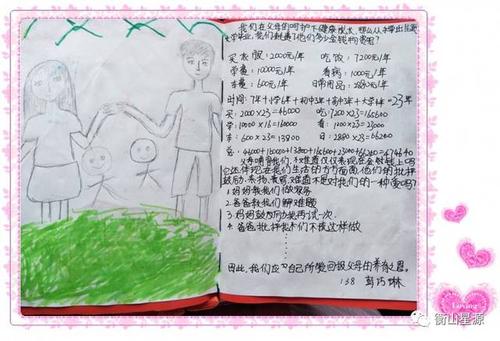 我们在父母的呵护下健康成长,那么从小学出生到
大学毕业,我们耗费了他们多少金钱物资呢?
买衣服:2000元/年 吃饭:7200元/年
学费:10000元/年 看病:1000元/年
书费:600元/年 日常用品:2880元/年
时间:7年+小学6年+初中3年+高中3年+大学4年=23年
买:2000×23=46000 吃:7200×23=165600
学:10000×16=160000 看:1000×23=23000
书:600×23=13800 日:2880×23=66240
总:46000+160000+13800+165600+23000+66240=474640
父母哺育我们,难道仅仅表现在金钱上吗?
它还体现在我们生活的方方面面,他们的批评
鼓励、表扬、教育,难道不是对我们的一种爱吗?
1.妈妈教我们做家务
2.爸爸教我们解难题
3.妈妈鼓励我再试一次
4.爸爸批评我们不该这样做
……
因此,我们应 自己所能回报父母的养育之恩。
138 彭巧琳
Loving
衡山星源